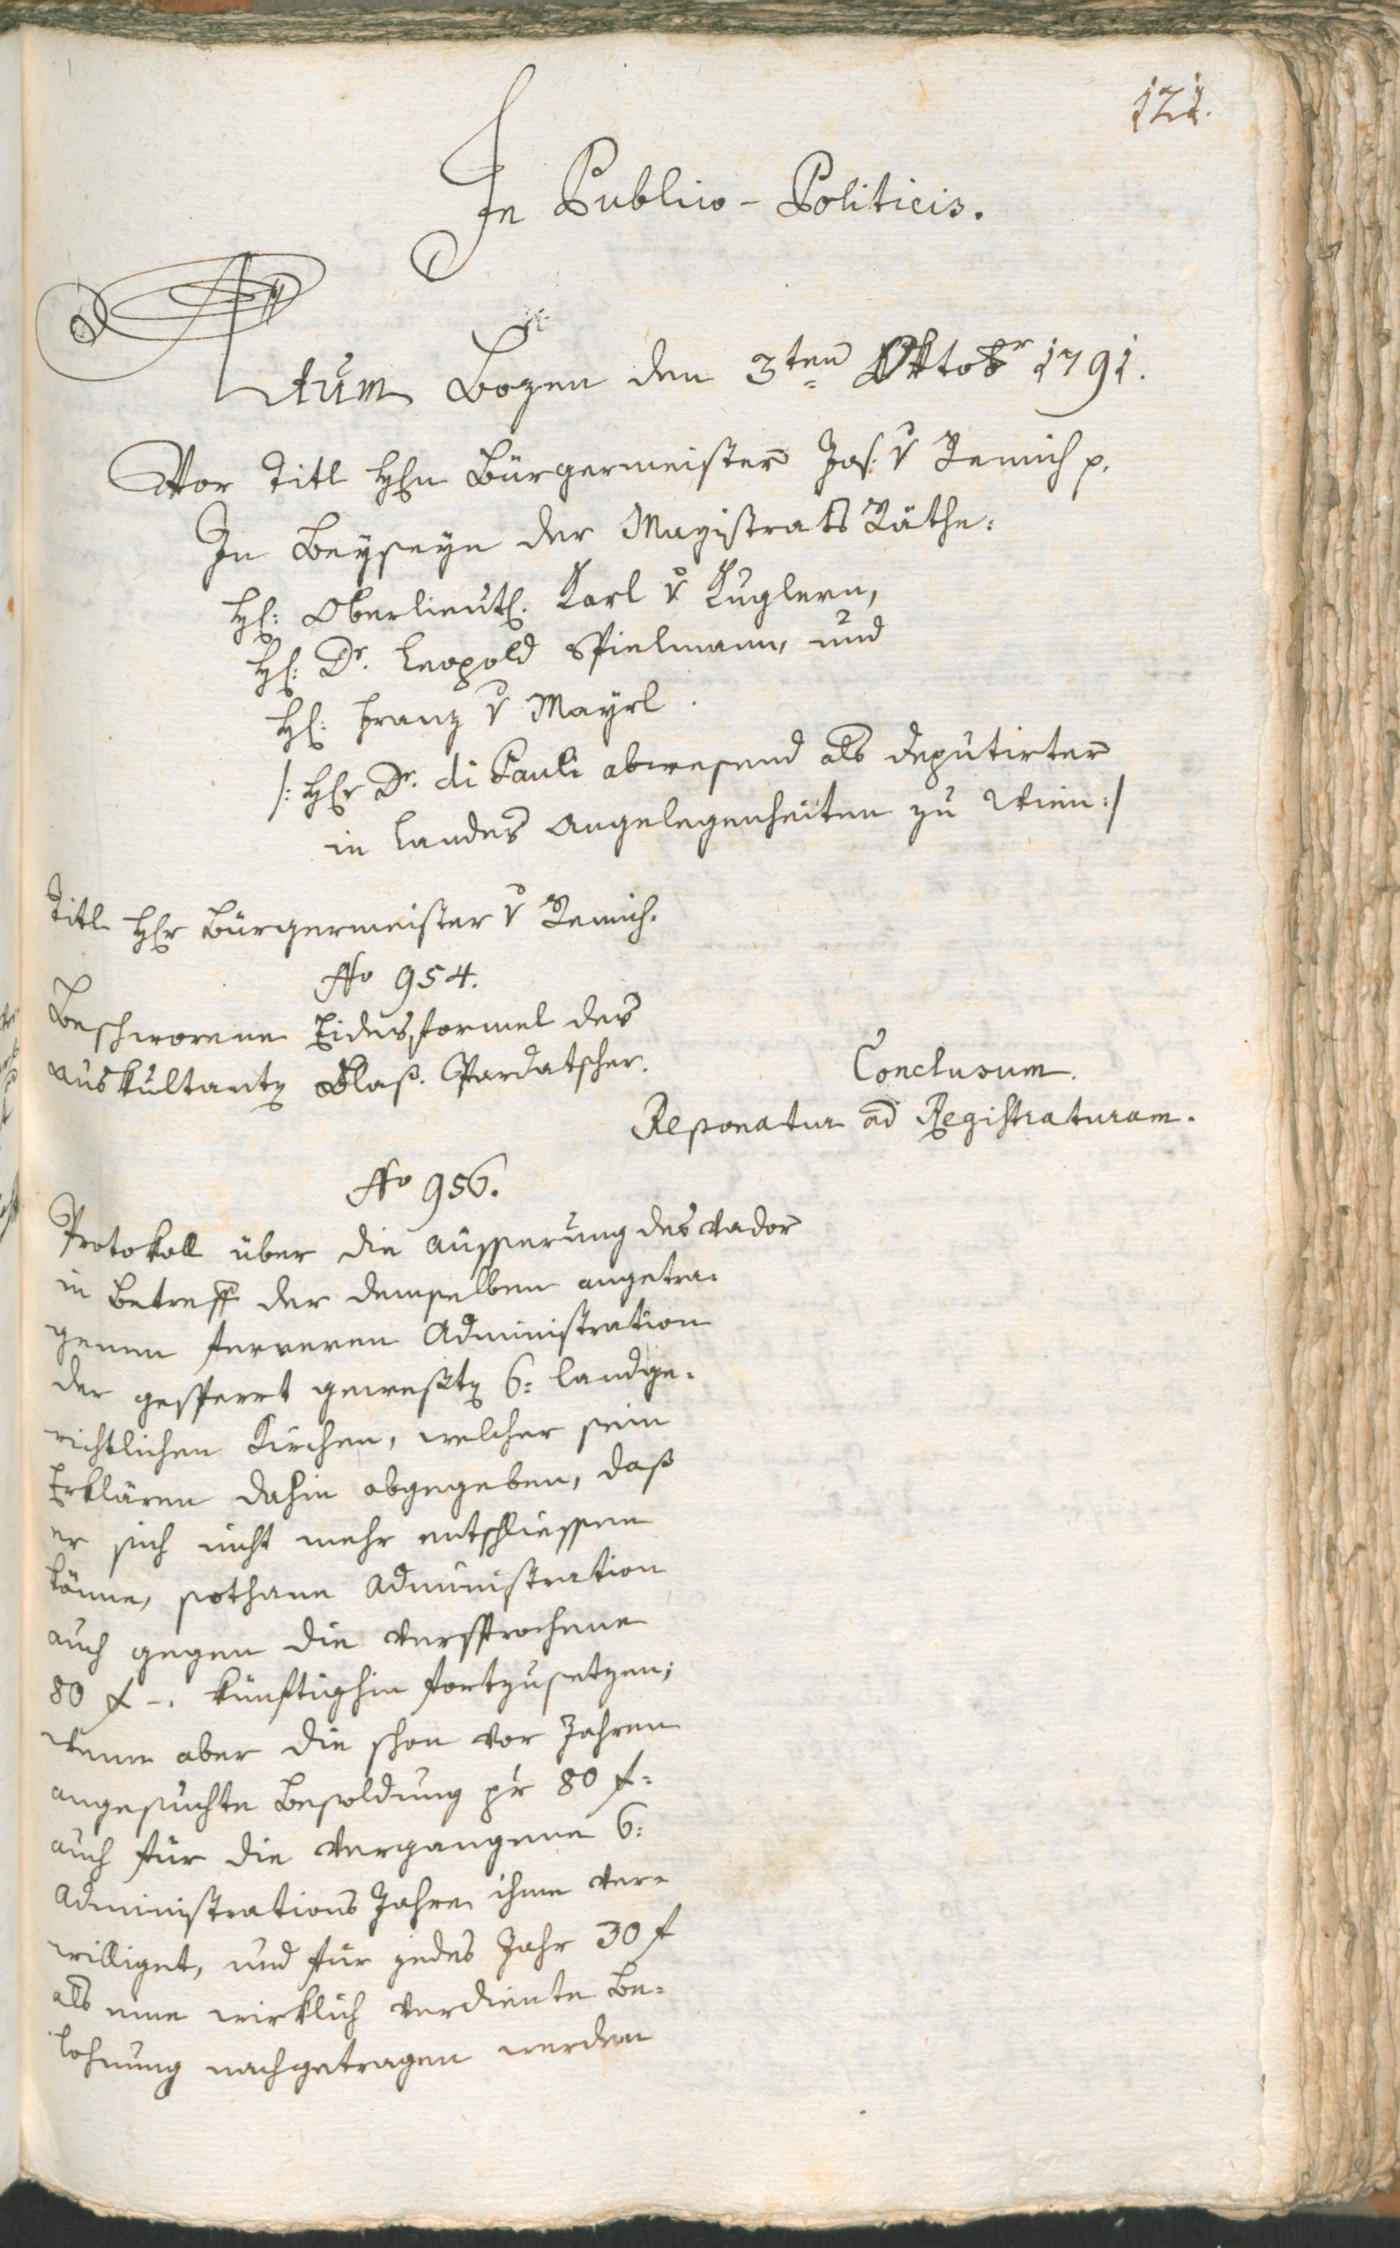 121.
In Publico-Politicis.
Actum Bozen den 3ten Oktobr 1791.
Vor Titl Hhn Bürgermeister Jos: v Remich p.
In Beyseyn der Magistrats Räthe:
Hh: Oberlieut. Karl v Kuglern,
Hh: Dr. Leopold Spielmann, und
Hh: Franz v Mayrl.
/: Hhr Dr. di Pauli abwesend als deputirter
in Landes Angelegenheiten zu Wien :/
Titl Hhr Bürgermeister v Remich.
No 954.
Beschworene Eidesformel des
Auskultanten Blaß. Pardatscher.
Conclusum.
Reponatur ad Registraturam.
No 956.
Protokoll über die Äusserung des Vador
in Betreff der demselben angetra=
genen ferneren Administration
der gesperrt gewesten 6: landge=
richtlichen Kirchen, welcher sein
Erklären dahin abgegeben, daß
er sich nicht mehr entschliessen
könne, sothane Administration
auch gegen die versprochene
80 f -. künftighin fortzusetzen;
wenn aber die schon vor Jahren
angesuchte Besoldung pr 80 f:
auch für die vergangene 6:
Administrations Jahre ihme ver=
williget, und für jedes Jahr 30 f
als eine wirklich verdiente Be=
lohnung nachgetragen werden